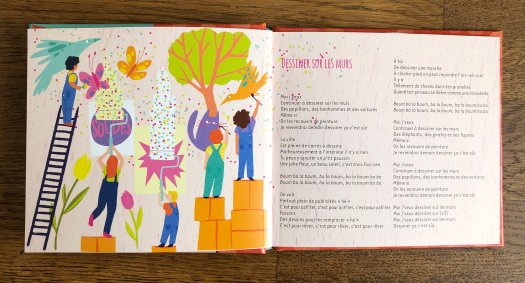 SOLDES
DESSINER SUR LES MURS
Moi j'veux
Continuer à dessiner sur les murs
Des papillons, des bonhommes et des voitures
Même si
On les recouvre de peinture
Je reviendrai demain dessiner ça c'est sûr
La ville
Est pleine de carrés à dessins
Malheureusement à l'intérieur il n'y a rien
Tu peux y ajouter un p'tit poussin
Une jolie fleur, un beau soleil, c'est trois fois rien
Baum ba la baum, ba la baum ba ba
Baum ba la baum, ba la baum ba ba
On voit
Partout plein de publicités « hé »
C'est pour ach'ter, c'est pour ach'ter, c'est pour ach'ter
Faisons
Des dessins pour les remplacer « hé »
C'est pour rêver, c'est pour rêver, c'est pour rêver
À toi
De dessiner une marelle
À cloche-pied on peut rejoindre l'arc-en-ciel
Il y a
Tellement de choses dans tes prunelles
Quand ton pinceau se libère comme une hirondelle
Baum ba la baum, ba la baum ba ba
Baum ba la baum, ba la baum ba ba
Moi j'veux
Continuer à dessiner sur les murs
Des éléphants, des girafes et des figures
Même si
On les recouvre de peinture
Je reviendrai demain dessiner ça c'est sûr
Moi j'veux
Continuer à dessiner sur les murs
Des papillons, des bonhommes et des voitures
Même si
On les recouvre de peinture
Je reviendrai demain dessiner ça c'est sûr
Moi j'veux dessiner sur les murs
Moi j'veux dessiner sur les murs
Moi j'veux dessiner sur les murs
Dessiner ça c'est sûr